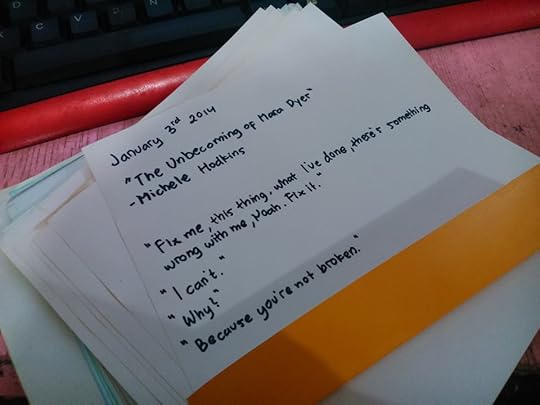 January 3rd 2014
"The Unbecoming of Mara Dyer"
- Michele Hodkins
"Fix me, this thing. What I've done, there's something
wrong with me, Noah. Fix it."
"I can't."
"Why?"
"Because you're not broken."